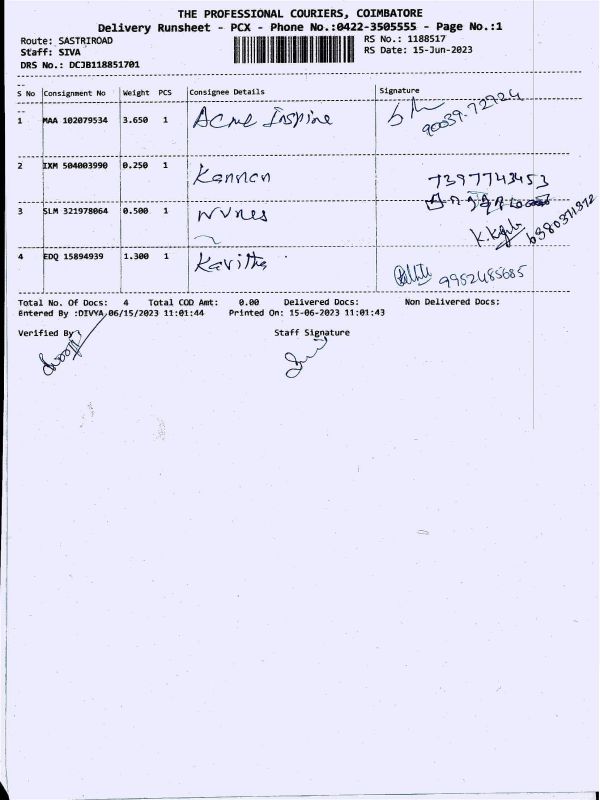 THE PROFESSIONAL COURIERS, COIMBATORE
Delivery Runsheet - PCX - Phone No.:0422-3505555 - Page No.:1
Route: SASTRIROAD RS No.: 1188517
Staff: SIVA RS Date: 15-Jun-2023
DRS No.: DCJB118851701
S No Consignment No Weight PCS Consignee Details Signature
1 MAA 102079534 3.650 1 Acme Inspire
90039-72724
2 IXM 504003990 0.250 1 Kannan 7397743453
3 SLM 321978064 0.500 1 6380371372
4 EDQ 15894939 1.300 1 Kavitha 9952485685
Total No. Of Docs: 4 Total COD Amt: 0.00 Delivered Docs: Non Delivered Docs:
Entered By :DIVYA,06/15/2023 11:01:44 Printed On: 15-06-2023 11:01:43
Verified By Staff Signature